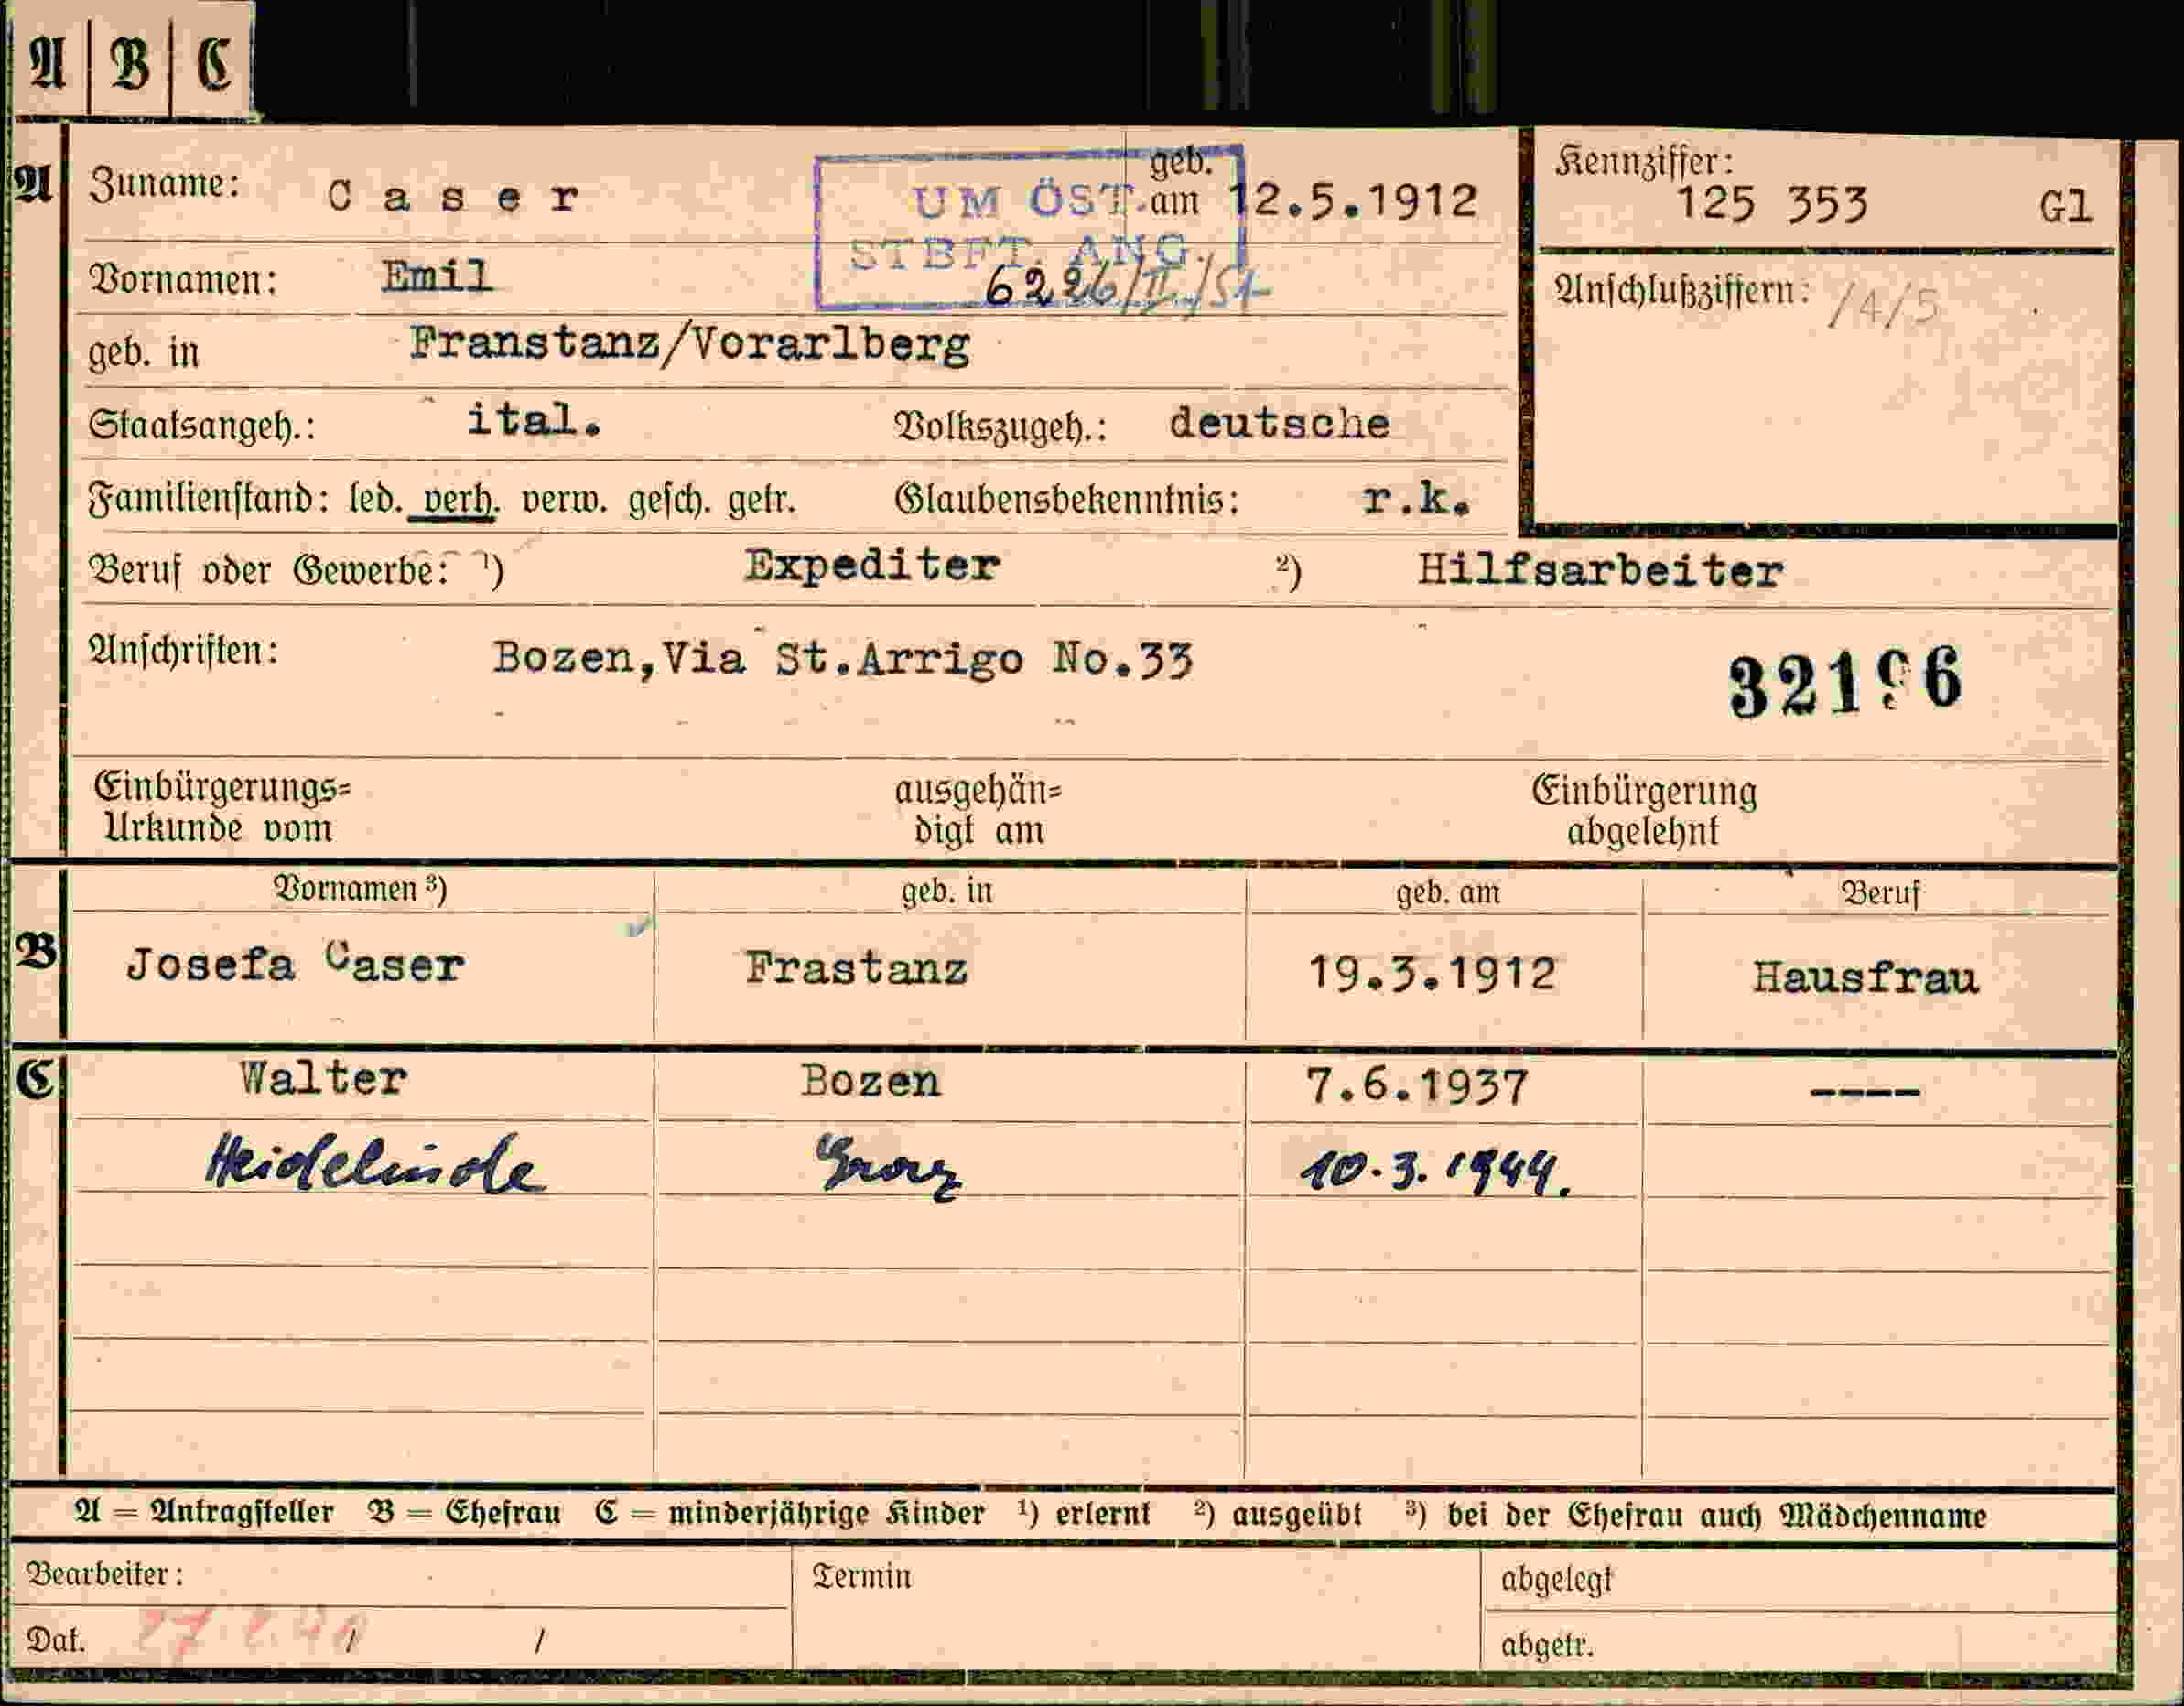 A B C
A Zuname: Caser geb. am 12.5.1912 Kennziffer: 125 353 Gl
UM ÖST.
STBFT. ANG.
Vornamen: Emil 6226/II./51 Anschlußziffern: /4/5
geb. in Franstanz/Vorarlberg
Staatsangeh.: ital. Volkszugeh.: deutsche
Familienstand: led. verh. verw. gesch. getr. Glaubensbekenntnis: r.k.
Beruf oder Gewerbe: ¹) Expediter ²) Hilfsarbeiter
Anschriften: Bozen,Via St.Arrigo No.33
Einbürgerungs= ausgehän= Einbürgerung
Urkunde vom digt am abgelehnt
Vornamen ³) geb. in geb. am Beruf
B Josefa Caser Frastanz 19.3.1912 Hausfrau
C Walter Bozen 7.6.1937 ----
Heidelinde 10.3.1944.
A = Antragsteller B = Ehefrau C = minderjährige Kinder ¹) erlernt ²) ausgeübt ³) bei der Ehefrau auch Mädchenname
Bearbeiter: Termin abgelegt
Dat. / / abgetr.